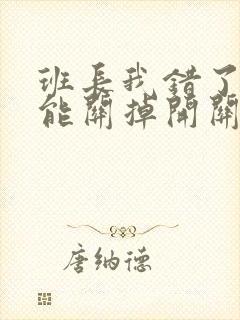 班长我错了
能關掉開關
唐纳德